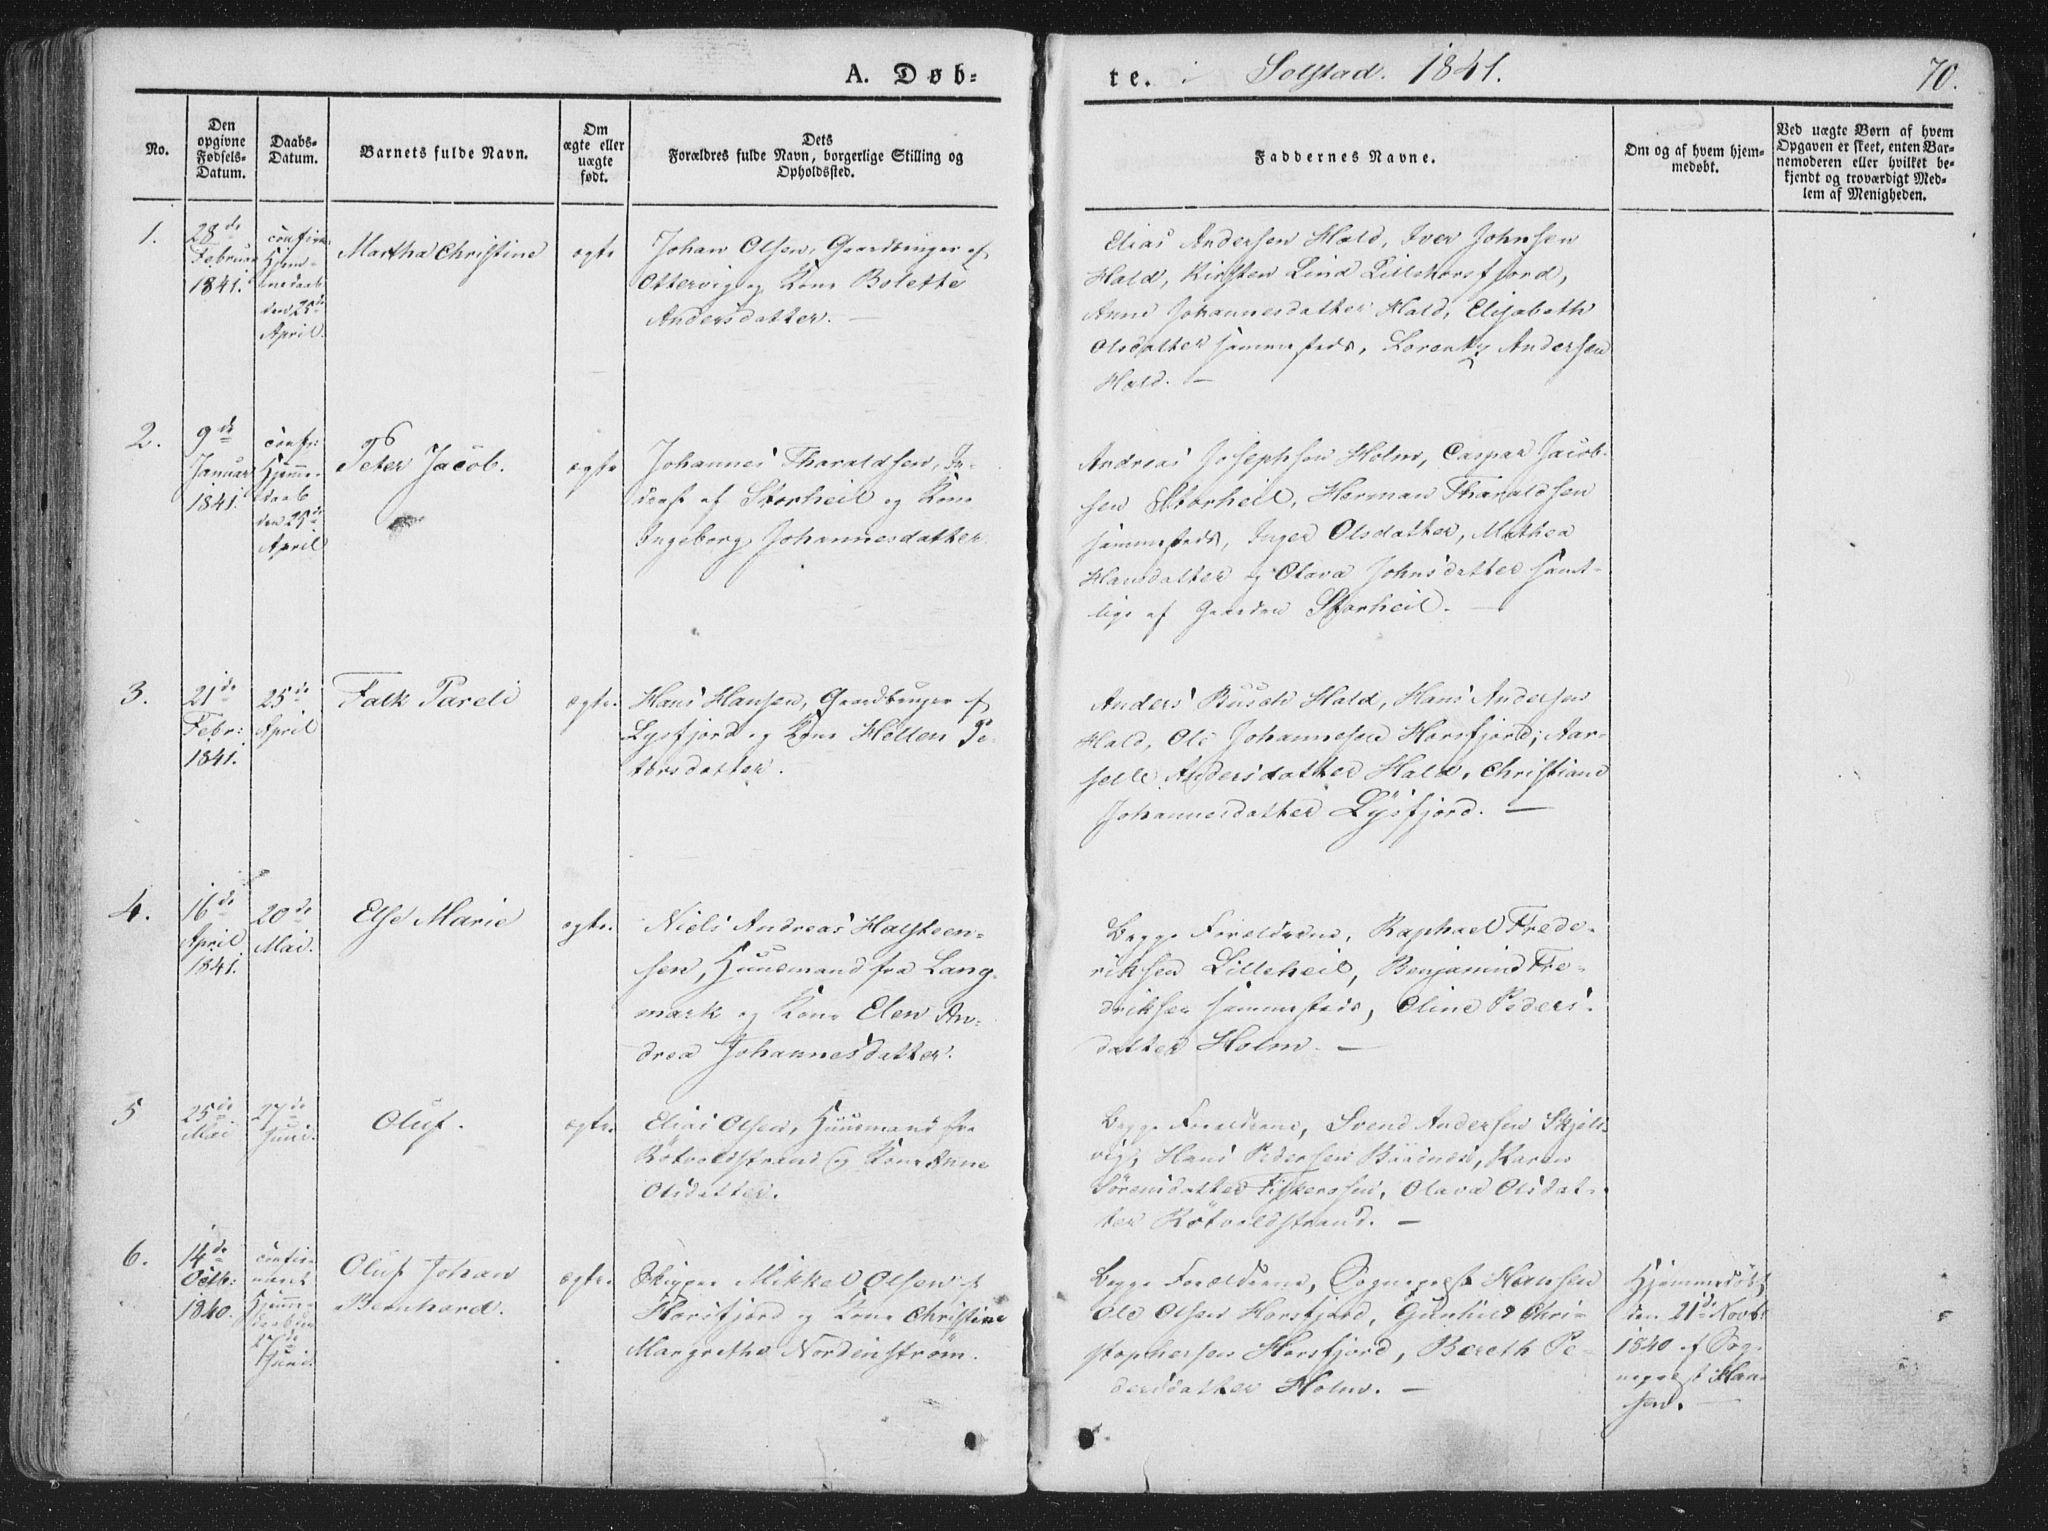 A. Døb-
te. i Solstad. 1841.
70.
No.
Den
opgivne
Fødsels-
Datum.
Daabs-
Datum.
Barnets fulde Navn.
Om
ægte eller
uægte
født.
Dets
Forældres fulde Navn, borgerlige Stilling og
Opholdssted.
Faddernes Navne.
Om og af hvem hjem-
medøbt.
Ved uægte Børn af hvem
Opgaven er skeet, enten Bar-
nemoderen eller hvilket be-
kjendt og troværdigt Med-
lem af Menigheden.
1.
28de
Februar
1841.
Hjem-
medaab
den 25de
April.
Martha Christine
ægte
Johan Olsen, Gaardbruger af
Ottervig og Kone Bolette
Andersdatter. —
Elias Andersen Hald, Iver Johnsen
Hald, Kirsten Lind Lillehorsfjord,
Anne Johannesdatter Hald, Elisabeth
Olsdatter sammesteds, Lorentz Andersen
Hald. —
2.
9de
Januar
1841.
conf:
Hjemme-
daab
den 25de
April
Peter Jacob.
ægte
Johannes Tharaldsen, In-
derst af Storheil og Kone
Ingeborg Johannesdatter.
Andreas Josephsen Holm, Caspar Jacob-
sen Storheil, Herman Tharaldsen
sammesteds, Inger Olsdatter, Mathea
Hansdatter og Olava Johnsdatter samt-
lige af Gaarden Storheil. —
3.
21de
Febr:
1841.
25de
April
Falk Pareli
ægte.
Hans Hansen, Gaardbruger af
Lysfjord og Kone Hellen Pe-
tersdatter.
Anders Busch Hald, Hans Andersen
Hald, Ole Johannesen Horsfjord, Aar-
selle Andersdatter Hald, Christiane
Johannesdatter Lysfjord. —
4.
16de
April
1841.
20de
Mai.
Else Marie
ægte.
Niels Andreas Halsteen-
sen, Huusmand fra Lang-
mark og Kone Elen An-
drea Johannesdatter.
Begge Forældrene, Raphael Frede-
riksen Lilleheil, Benjamin Fre-
driksen sammesteds, Eline Peders-
datter Holm. —
5
25de
Mai
27de
Juni.
Oluf.
ægte.
Elias Olsen, Huusmand fra
Rötvoldstrand og Kone Anne
Olsdatter.
Begge Forældrene, Svend Andersen Skjels-
vig, Hans Pedersen, Karen
Sörensdatter, Olava Olsdat-
ter Rötvoldstrand. —
6.
14de
Octb:
1840.
confir-
meret
Hjemme-
daaben
27de
Juni
Oluf Johan
Bernhard.
ægte.
Skipper Mikkel Olsen af
Horsfjord og Kone Christine
Margrethe Nordenström.
Begge Forældrene, Sognepræst Hansen
Ole Olsen Horsfjord, Gunhild Chri-
stophersen Horsfjord, Bereth Pe-
dersdatter Holm. —
Hjemmedöbt
den 21de Novb:
1840 af Sog-
nepræst Han-
sen. —